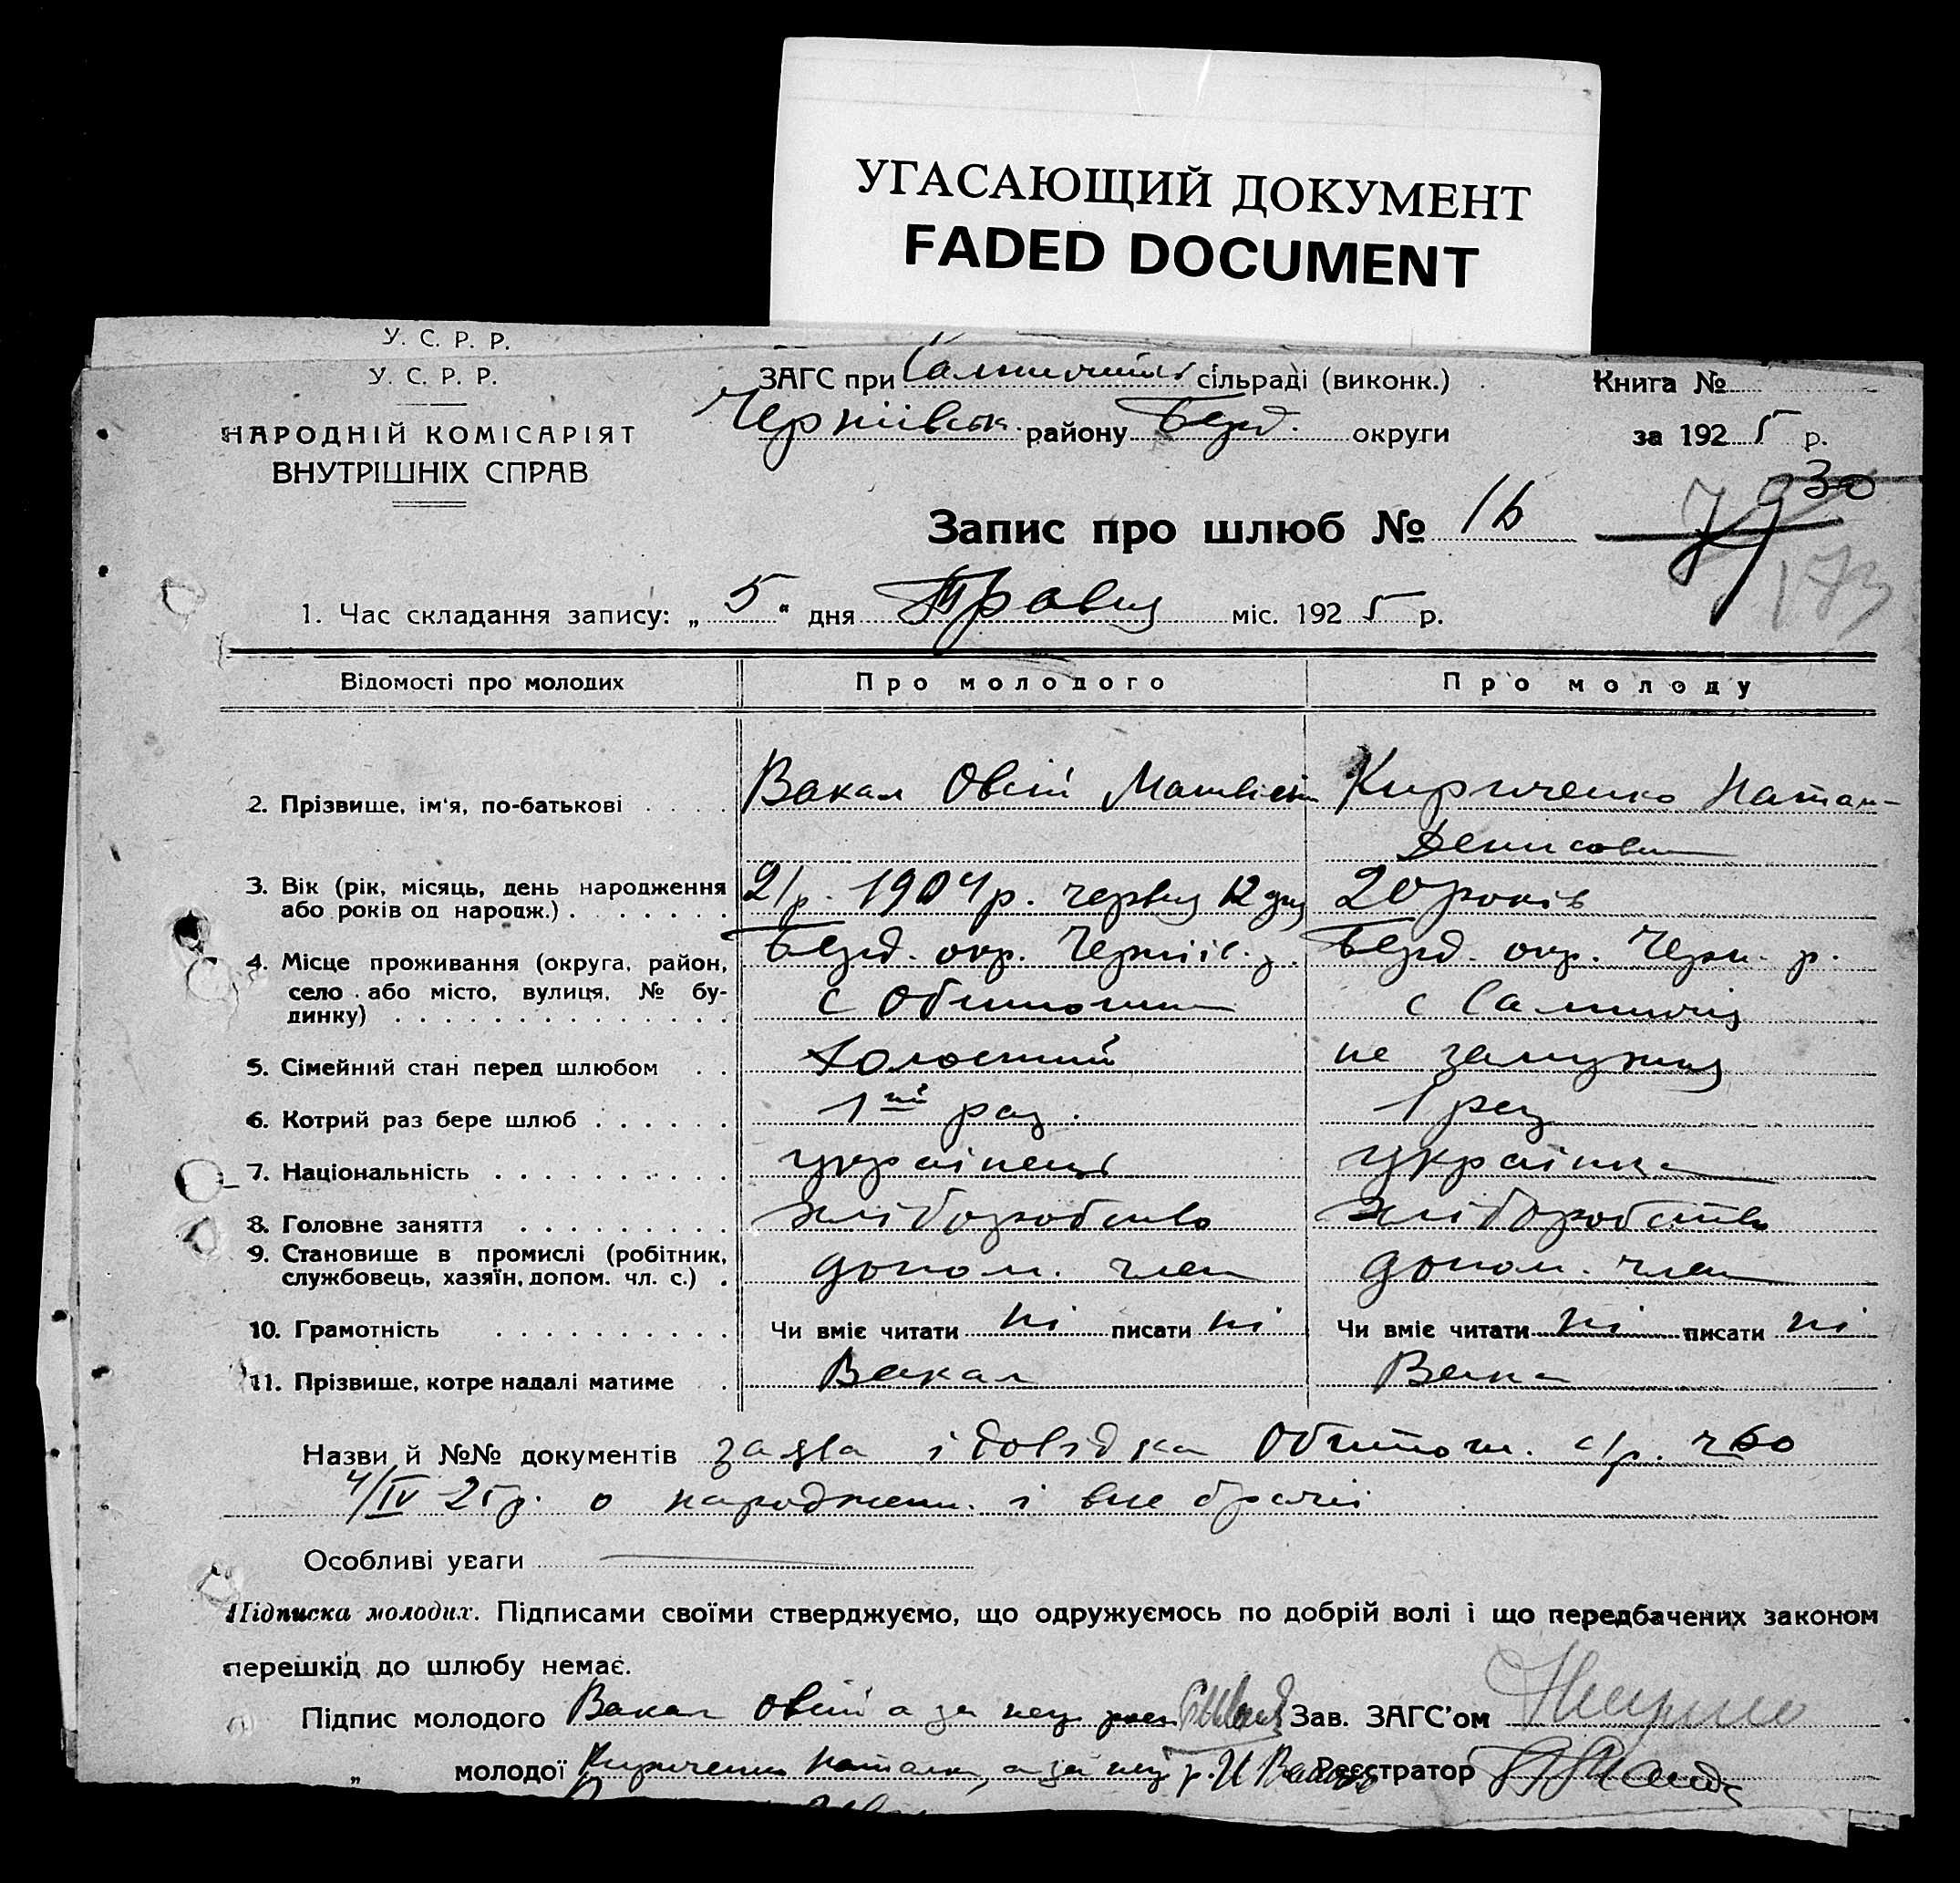 УГАСАЮЩИЙ ДОКУМЕНТ
FADED DOCUMENT
У. С. Р. Р.
У. С. Р. Р.
НАРОДНІЙ КОМІСАРІЯТ
ВНУТРІШНІХ СПРАВ
ЗАГС при сільраді (виконк.)
району Берд. округи
Книга №
за 1925 р.
30
Запис про шлюб № 16
79
173
1. Час складання запису: „5“ дня Травня міс. 1925 р.
Відомості про молодих Про молодого Про молоду
2. Прізвище, ім'я, по-батькові Вакал Овсій Матвієв Кириченко Натал-
Денисовна
3. Вік (рік, місяць, день народження 21 р. 1904 р. червня 12 дня 20 років
або років од народж.)
4. Місце проживання (округа, район, Берд. окр. Черніїв. р. Берд. окр. Черн. р.
село або місто, вулиця, № бу- с с
динку)
5. Сімейний стан перед шлюбом холостий не замужня
6. Котрий раз бере шлюб 1ий раз. 1 раз
7. Національність українець українка
8. Головне заняття хліборобство хліборобство
9. Становище в промислі (робітник, допом. член допом. член
службовець, хазяїн, допом. чл. с.)
10. Грамотність Чи вміє читати ні писати ні Чи вміє читати ні писати ні
11. Прізвище, котре надалі матиме Вакал Вакал
Назви й №№ документів заява і довідка с/р.
4/IV 25 р. о народжен. і вне брачії
Особливі уваги
Підписка молодих. Підписами своїми стверджуємо, що одружуємось по добрій волі і що передбачених законом
перешкід до шлюбу немає.
Підпис молодого Вакал Овсій а за нец Зав. ЗАГС'ом
„ молодої Кириченко Наталка, а за нец р. И Реєстратор